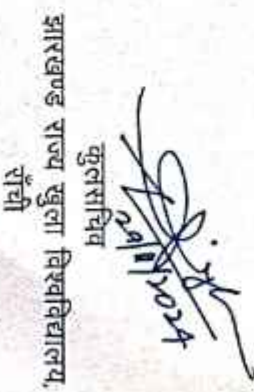 29/11/2024
कुलसचिव
झारखण्ड राज्य खुला विश्वविद्यालय,
राँची